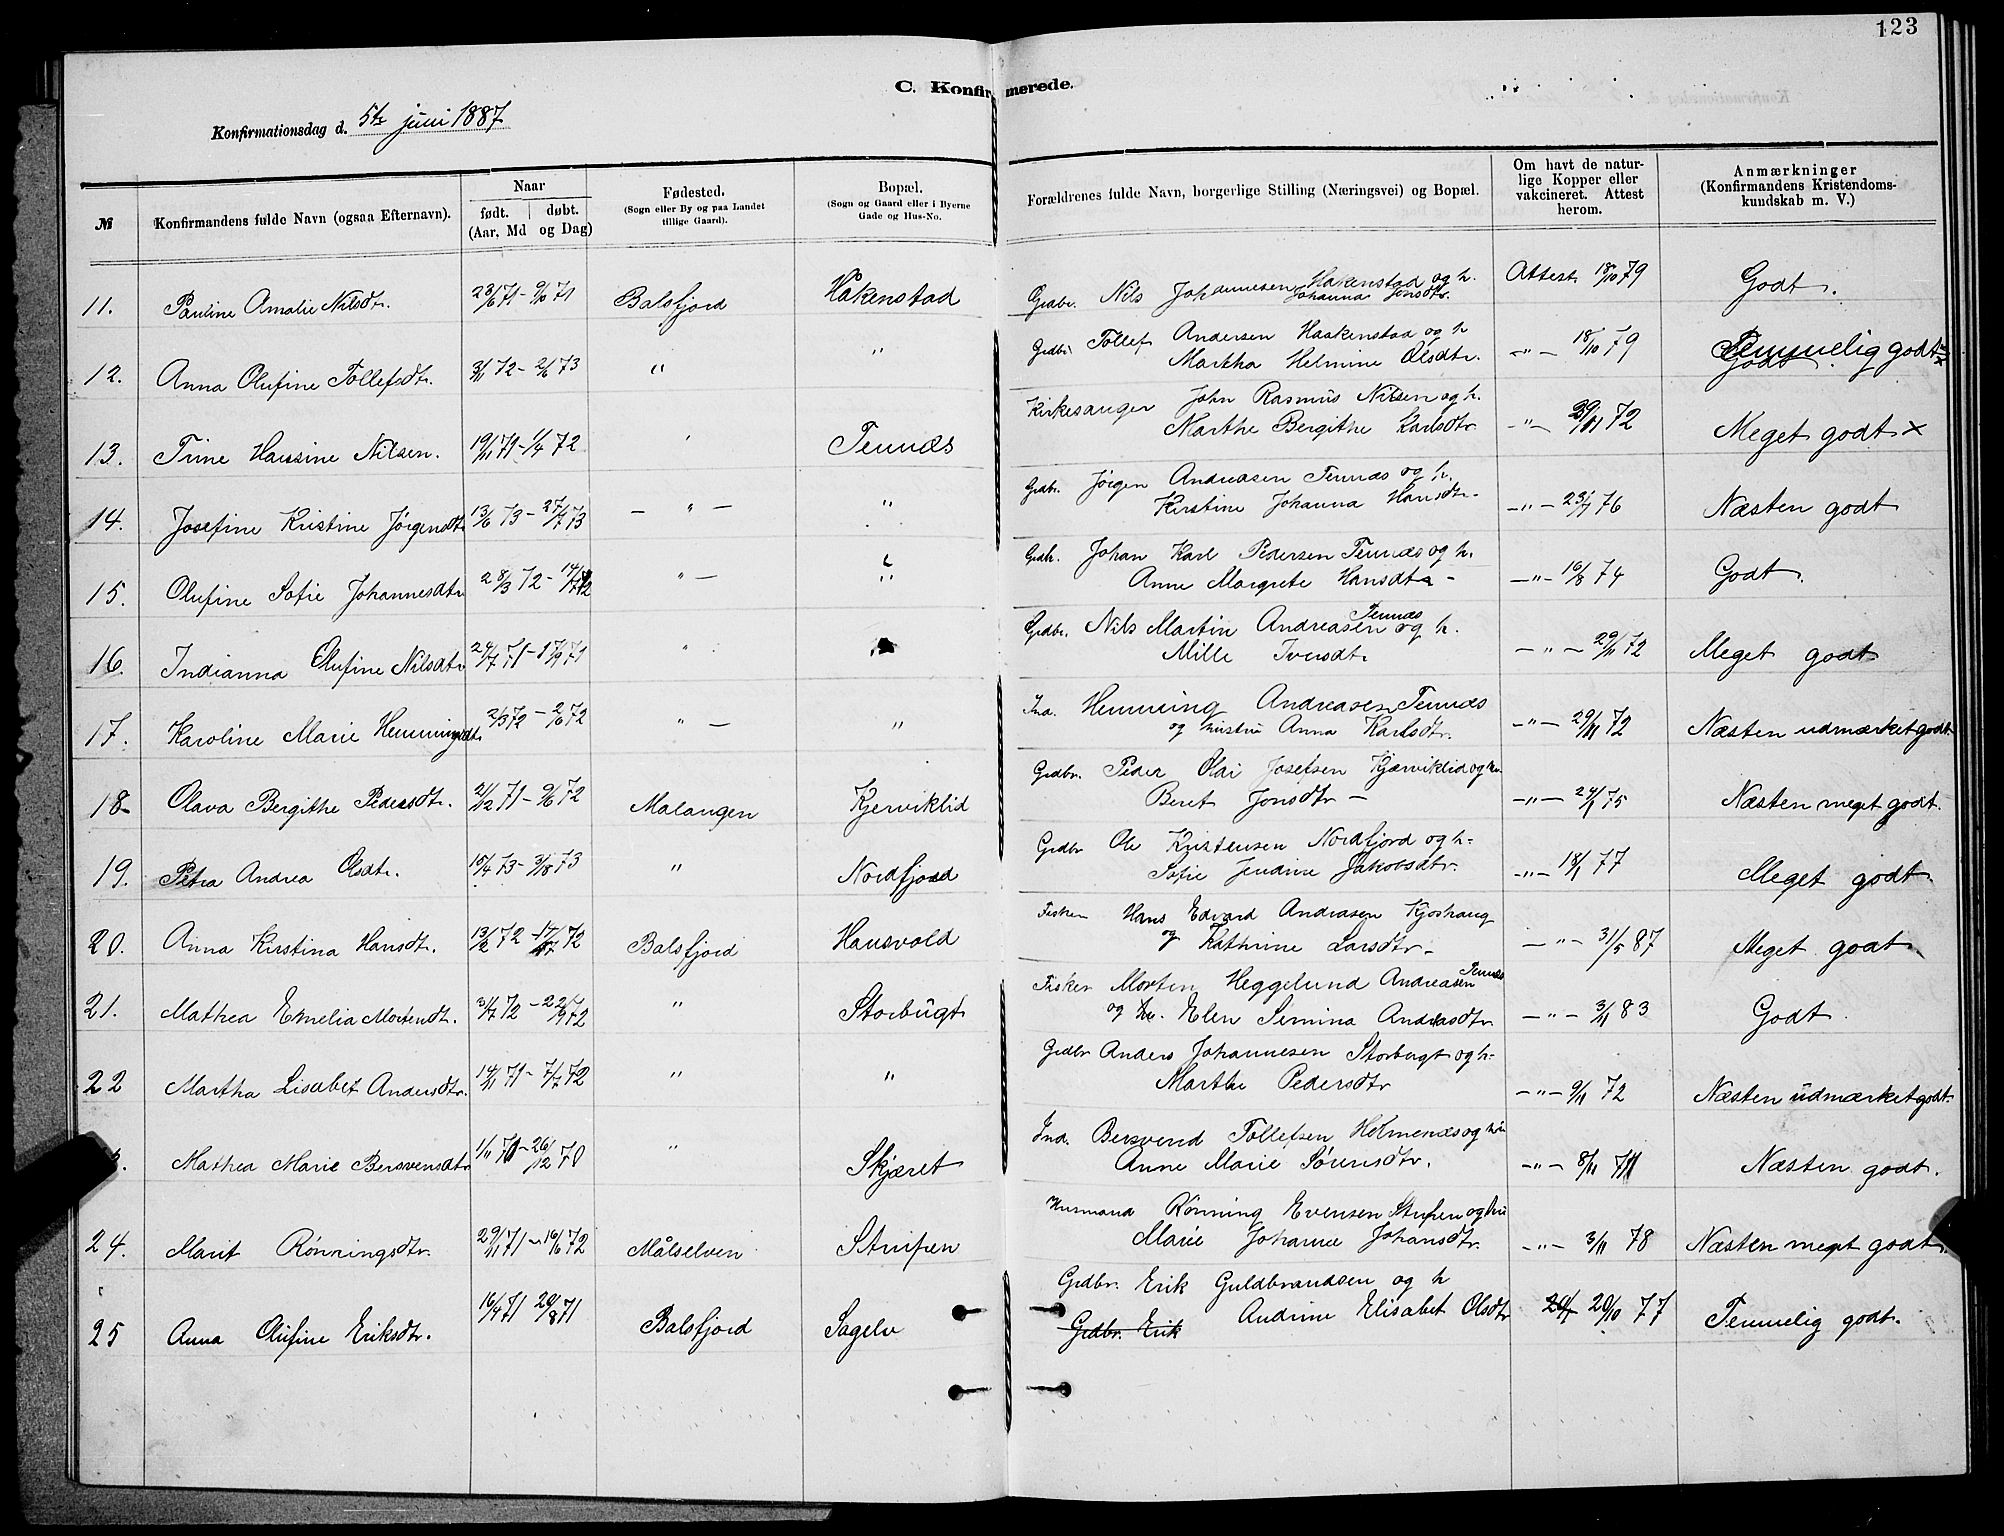 123
C. Konfirmerede.
Konfirmationsdag d. 5te juni 1887
№ Konfirmandens fulde Navn (ogsaa Efternavn). Naar født. døbt. (Aar, Md og Dag) Fødested. (Sogn eller By og paa Landet tillige Gaard). Bopæl. (Sogn og Gaard eller i Byerne Gade og Hus-No. Forældrenes fulde Navn, borgerlige Stilling (Næringsvei) og Bopæl. Om havt de naturlige Kopper eller vakcineret. Attest herom. Anmærkninger (Konfirmandens Kristendomskundskab m. V.)
11. Pauline Amalie Nilsdtr. 23/6 71 - 9/10 71 Balsfjord Håkenstad Grdbr. Nils Johannesen Hakenstad og h. Attest 18/10 79 Godt.
Johanna Jonsdtr.
12. Anna Olufine Tollefsdtr. 3/11 72 - 2/6 73 " " Grdbr Tollef Andersen Haakenstad og h -"- 18/10 79 Temmelig godt x
Martha Helmine Olsdtr. Godt.
13. Trine Hansine Nilsen. 19/11 71 - 1/4 72 Tennæs Kirkesanger John Rasmus Nilsen og h. -"- 29/11 72 Meget godt x
Marthe Bergithe Karlsdtr
14. Josefine Kristine Jørgensdtr 13/6 73 - 27/7 73 - " - " Grdbr. Jørgen Andreasen Tennæs og h. -"- 23/7 76 Næsten godt
Kirstine Johanna Hansdtr-
15. Olufine Sofie Johannesdtr 28/3 72 - 14/7 72 " - " Grdbr. Johan Karl Pedersen Tennæs og h. -"- 16/8 74 Godt.
Anne Margrete Hansdtr -
16. Indianna Olufine Nilsdtr 24/7 71 - 17/9 71 " Grdbr. Nils Martin Andreasen Tennæs og h. -"- 29/11 72 Meget godt
Mille Iversdtr
17. Karoline Marie Hemmingsdtr 2/3 72 - 2/6 72 " - " Ind. Hemming Andreasen Tennæs -"- 29/11 72 Næsten udmærket godt.
og hustru Anna Karlsdtr.
18 Olava Bergithe Pedersdtr. 21/12 71 - 9/6 72 Malangen Kjerviklid Grdbr. Peder Olai Josefsen Kjærviklid og hu. -"- 24/1 75 Næsten meget godt.
Beret Jonsdtr -
19. Petra Andrea Olsdtr. 15/4 73 - 3/8 73 " Nordfjord Grdbr Ole Kristensen Nordfjord og h- -"- 18/1 77 Meget godt.
Sofie Jendine Jakobsdtr.
20. Anna Kirstina Hansdtr. 13/2 72 - 17/7 72 Balsfjord Hansvold Fisker Hans Edvard Andreasen Kjoshaug -"- 31/5 87 Meget godt.
og Kathrine Larsdtr -
21. Mathea Emelia Mortensdtr. 3/7 72 - 22/9 72 " Storbugt Fisker Morten Heggelund Andreasen Tennæs -"- 3/11 83 Godt
og hu. Elen Semina Andreasdtr
22 Martha Lisabet Andersdtr. 14/11 71 - 7/7 72 " " Grdbr Anders Johannesen Storbugt og h- -"- 9/11 72 Næsten udmærket godt.
Marthe Pedersdtr
Mathea Marie Bersvensdtr 1/11 70 - 26/12 70 " Skjæret Ind. Bersvend Tollefsen Holmenæs og hu -"- 8/11 71 Næsten godt.
Anne Marie Sørensdtr.
24. Marit Rønningsdtr. 29/11 71 - 16/6 72 Målselven Strupen Husmand Rønning Evensen Strupen og hu -"- 3/11 78 Næsten meget godt.
Marie Johanne Johansdtr.
25 Anna Olufine Eriksdtr. 16/4 71 20/8 71 Balsfjord Sagelv Grdbr. Erik Guldbrandsen og h 20/10 77 Temmelig godt.
Grdbr. Erik Andrine Elisabet Olsdtr